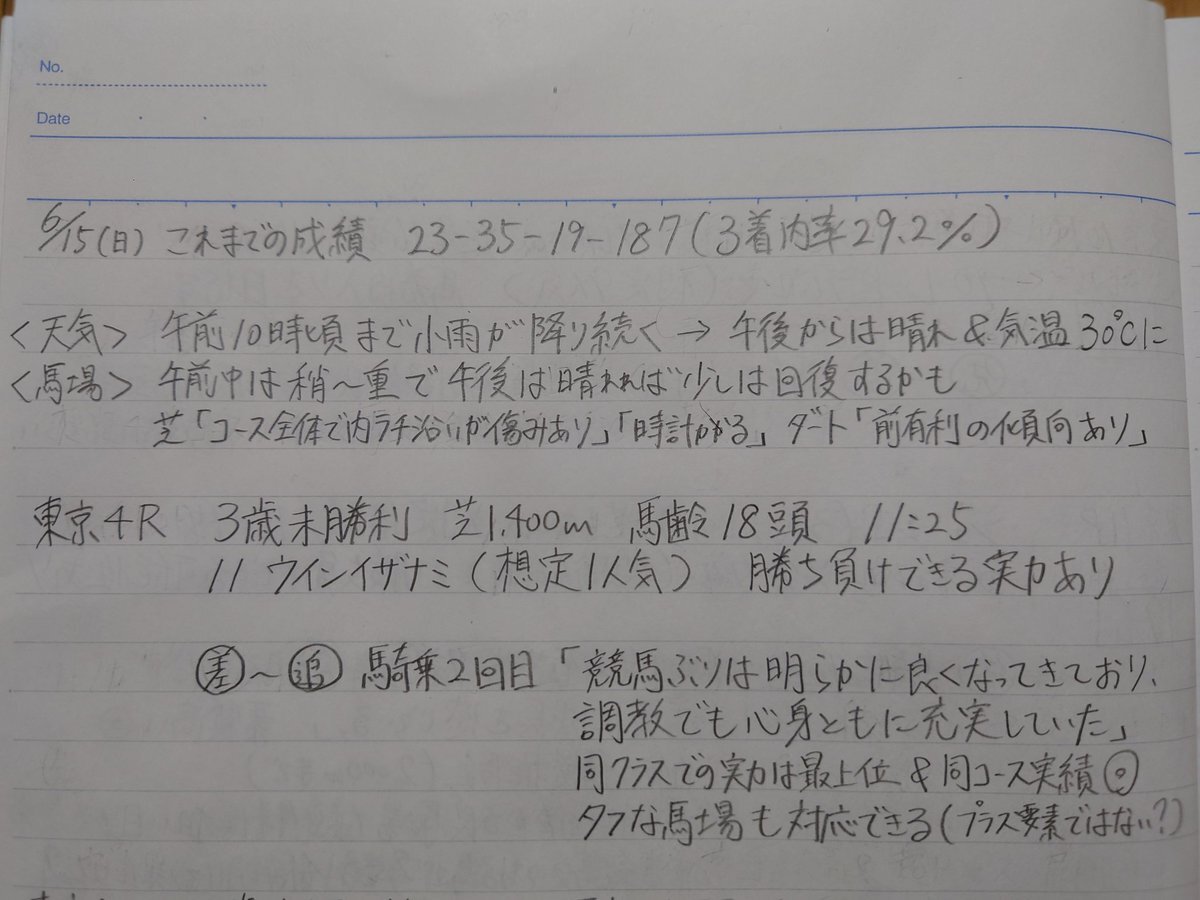 No.
Date
6/15(日) これまでの成績 23-35-19-187(3着内率29.2%)
<天気> 午前10時頃まで小雨が降り続く→午後からは晴れ&気温30℃に
<馬場> 午前中は稍~重で午後は晴れれば少しは回復するかも
芝「コース全体で内ラチ沿いが傷みあり」「時計かかる」 ダート「前有利の傾向あり」
東京4R 3歳未勝利 芝1,400m 馬齢18頭 11:25
11 ウインイザナミ(想定1人気) 勝ち負けできる実力あり
差~追 騎乗2回目「競馬ぶりは明らかに良くなってきており、
調教でも心身ともに充実していた」
同クラスでの実力は最上位&同コース実績◎
タフな馬場も対応できる(プラス要素ではない?)